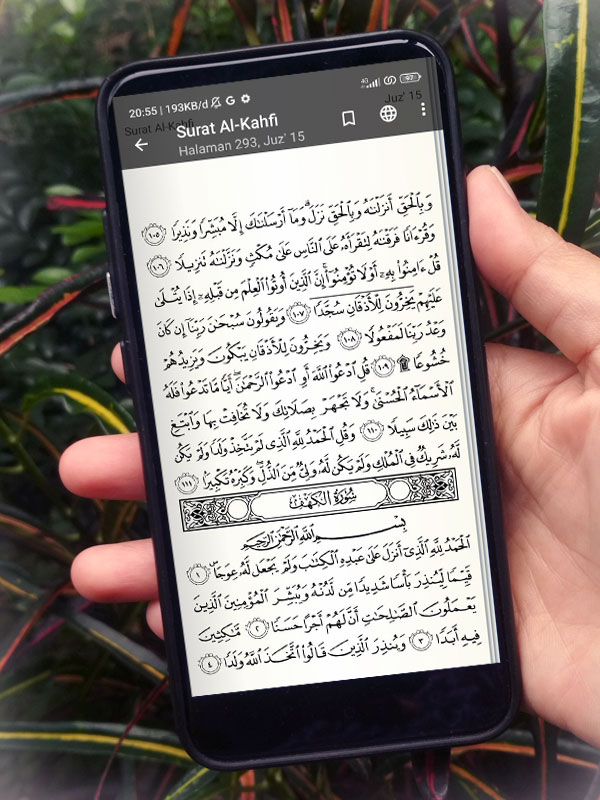 20:55 | 193KB/d
4G 97
Surat Al-Kahfi
Juz' 15
Surat Al-Kahfi
Halaman 293, Juz' 15
وَبِٱلْحَقِّ أَنزَلْنَٰهُ وَبِٱلْحَقِّ نَزَلَ ۗ وَمَآ أَرْسَلْنَٰكَ إِلَّا مُبَشِّرًا وَنَذِيرًا ١٠٥
وَقُرْءَانًا فَرَقْنَٰهُ لِتَقْرَأَهُۥ عَلَى ٱلنَّاسِ عَلَىٰ مُكْثٍ وَنَزَّلْنَٰهُ تَنزِيلًا ١٠٦
قُلْ ءَامِنُوا۟ بِهِۦٓ أَوْ لَا تُؤْمِنُوٓا۟ ۚ إِنَّ ٱلَّذِينَ أُوتُوا۟ ٱلْعِلْمَ مِن قَبْلِهِۦٓ إِذَا يُتْلَىٰ
عَلَيْهِمْ يَخِرُّونَ لِلْأَذْقَانِ سُجَّدًا ١٠٧ وَيَقُولُونَ سُبْحَٰنَ رَبِّنَآ إِن كَانَ
وَعْدُ رَبِّنَا لَمَفْعُولًا ١٠٨ وَيَخِرُّونَ لِلْأَذْقَانِ يَبْكُونَ وَيَزِيدُهُمْ
خُشُوعًا ۩ ١٠٩ قُلِ ٱدْعُوا۟ ٱللَّهَ أَوِ ٱدْعُوا۟ ٱلرَّحْمَٰنَ ۖ أَيًّا مَّا تَدْعُوا۟ فَلَهُ
ٱلْأَسْمَآءُ ٱلْحُسْنَىٰ ۚ وَلَا تَجْهَرْ بِصَلَاتِكَ وَلَا تُخَافِتْ بِهَا وَٱبْتَغِ
بَيْنَ ذَٰلِكَ سَبِيلًا ١١٠ وَقُلِ ٱلْحَمْدُ لِلَّهِ ٱلَّذِى لَمْ يَتَّخِذْ وَلَدًا وَلَمْ يَكُن
لَّهُۥ شَرِيكٌ فِى ٱلْمُلْكِ وَلَمْ يَكُن لَّهُۥ وَلِىٌّ مِّنَ ٱلذُّلِّ ۖ وَكَبِّرْهُ تَكْبِيرًۢا ١١١
سُورَةُ الكَهْفِ
بِسْمِ ٱللَّهِ ٱلرَّحْمَٰنِ ٱلرَّحِيمِ
ٱلْحَمْدُ لِلَّهِ ٱلَّذِىٓ أَنزَلَ عَلَىٰ عَبْدِهِ ٱلْكِتَٰبَ وَلَمْ يَجْعَل لَّهُۥ عِوَجَاۜ ١
قَيِّمًا لِّيُنذِرَ بَأْسًا شَدِيدًا مِّن لَّدُنْهُ وَيُبَشِّرَ ٱلْمُؤْمِنِينَ ٱلَّذِينَ
يَعْمَلُونَ ٱلصَّٰلِحَٰتِ أَنَّ لَهُمْ أَجْرًا حَسَنًا ٢ مَّٰكِثِينَ
فِيهِ أَبَدًا ٣ وَيُنذِرَ ٱلَّذِينَ قَالُوا۟ ٱتَّخَذَ ٱللَّهُ وَلَدًا ٤